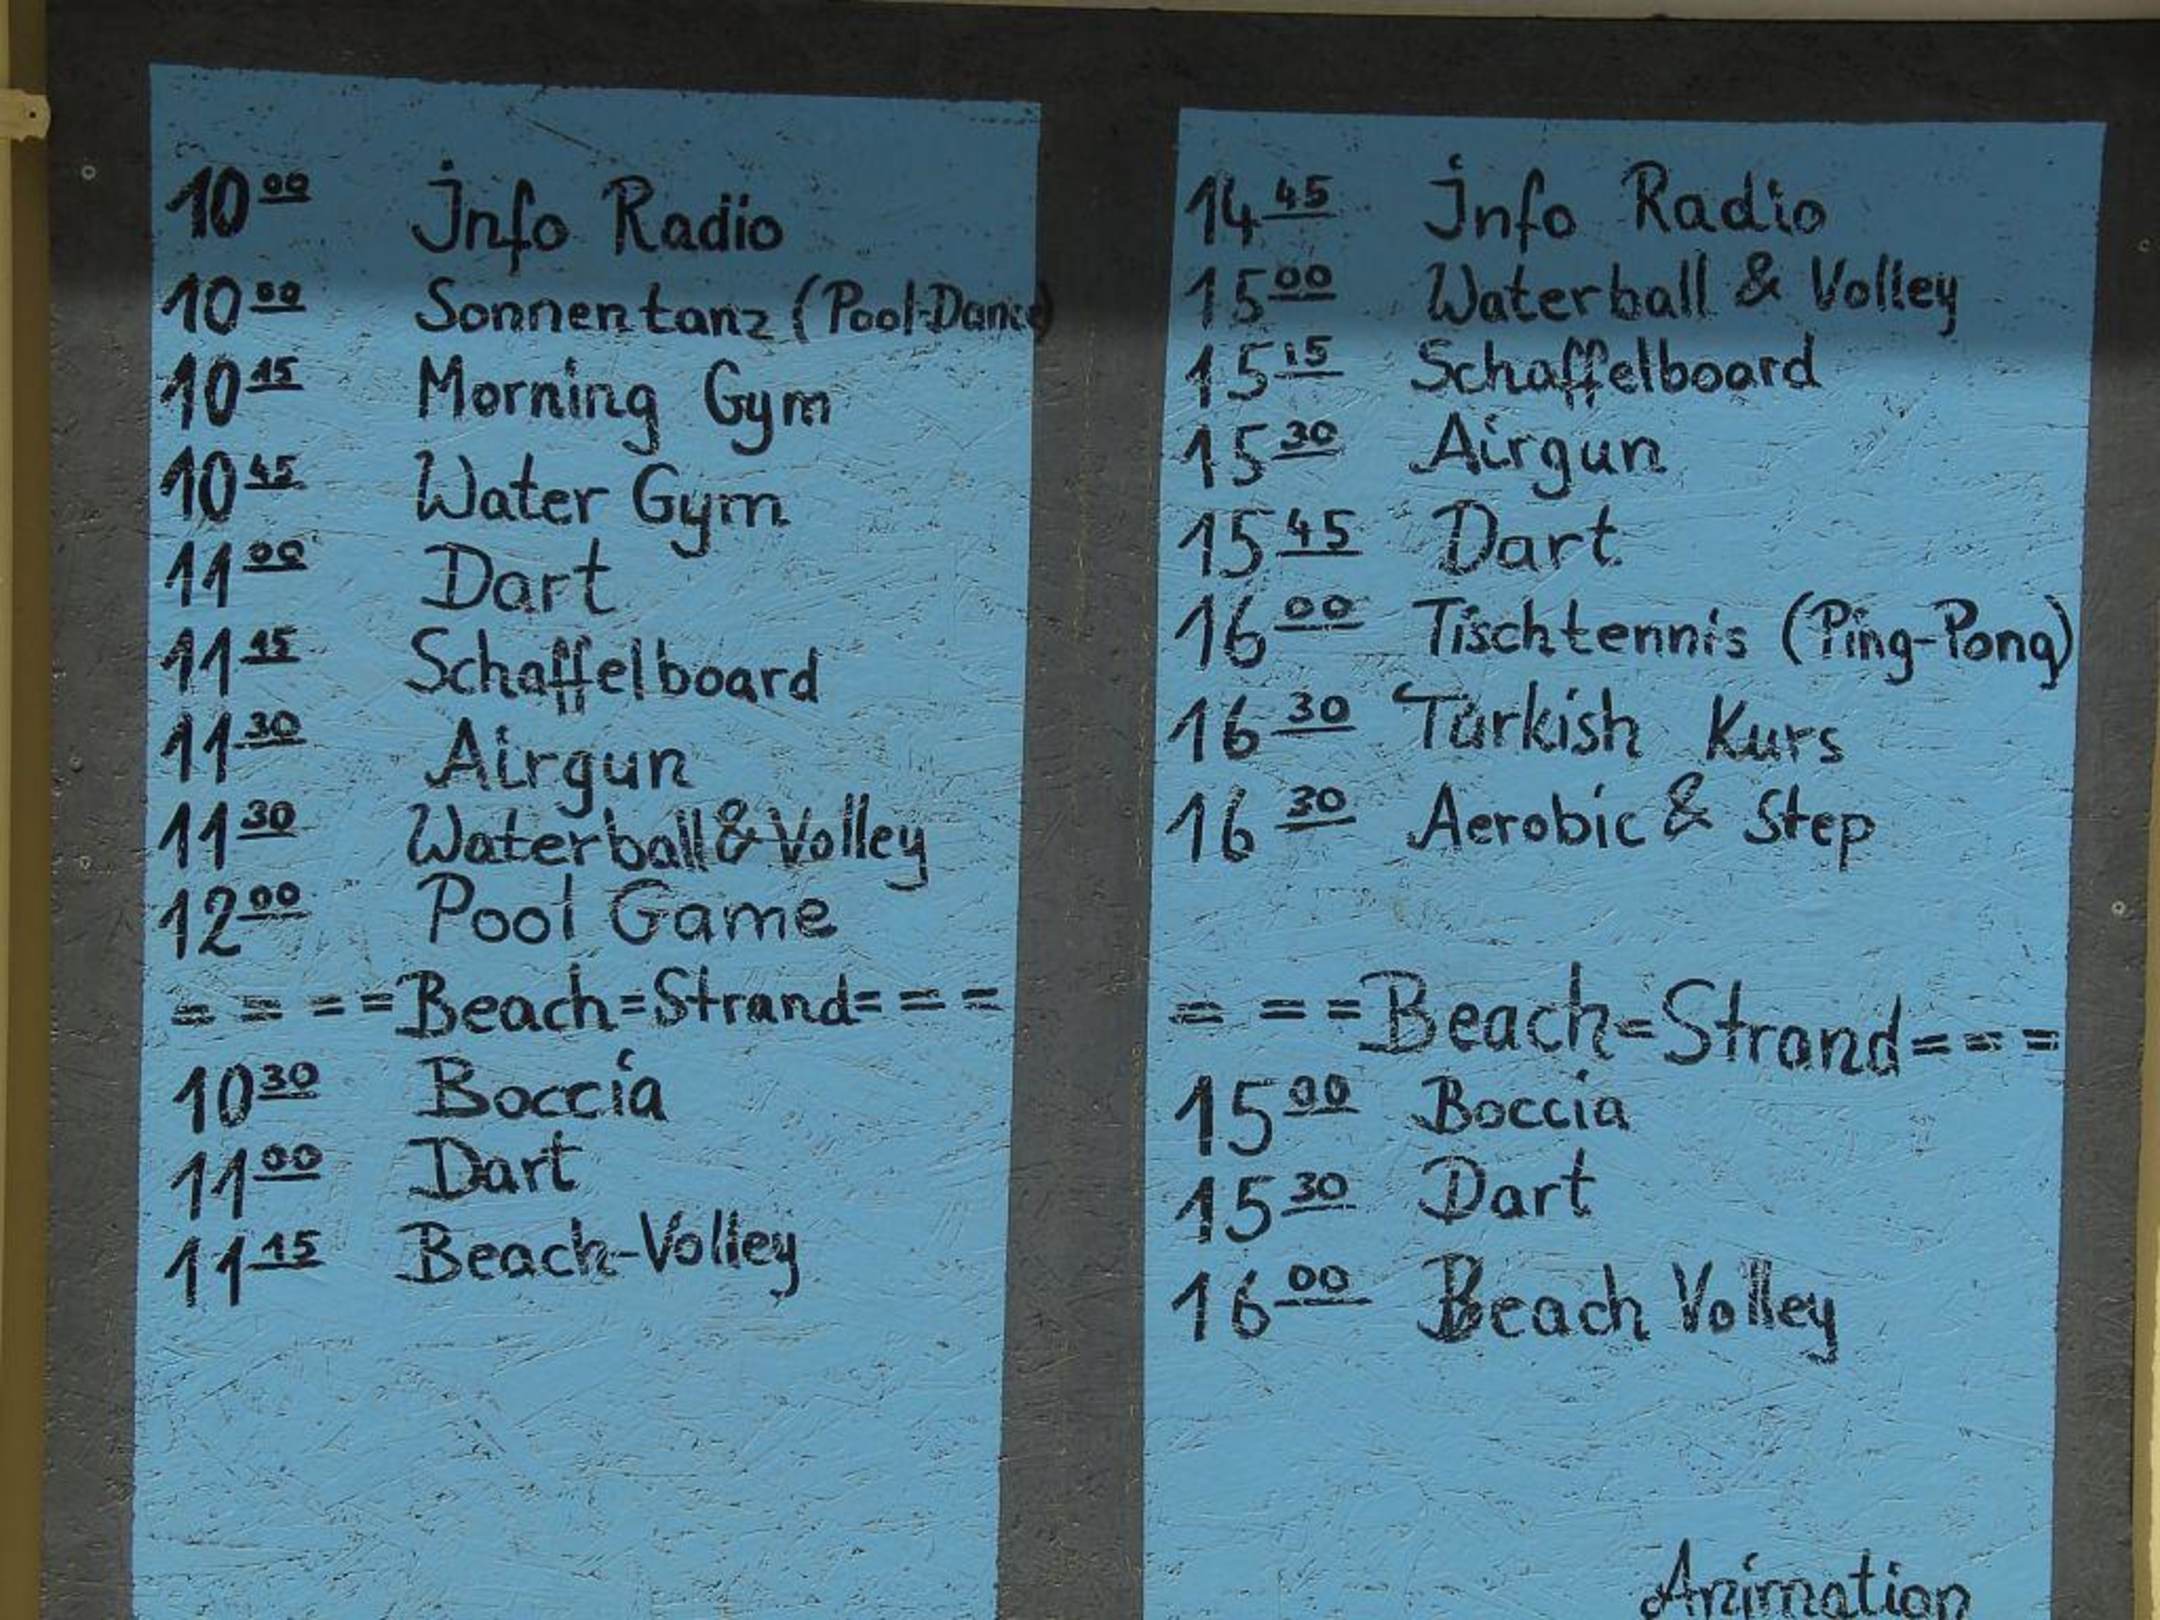 10 00 Info Radio
10 00 Sonnentanz (Pool-Dance)
10 15 Morning Gym
10 45 Water Gym
11 00 Dart
11 15 Schaffelboard
11 30 Airgun
11 30 Waterball & Volley
12 00 Pool Game
= = = = Beach = Strand = = =
10 30 Boccia
11 00 Dart
11 15 Beach-Volley
14 45 Info Radio
15 00 Waterball & Volley
15 15 Schaffelboard
15 30 Airgun
15 45 Dart
16 00 Tischtennis (Ping-Pong)
16 30 Turkish Kurs
16 30 Aerobic & Step
= = = Beach = Strand = = =
15 00 Boccia
15 30 Dart
16 00 Beach Volley
Animation